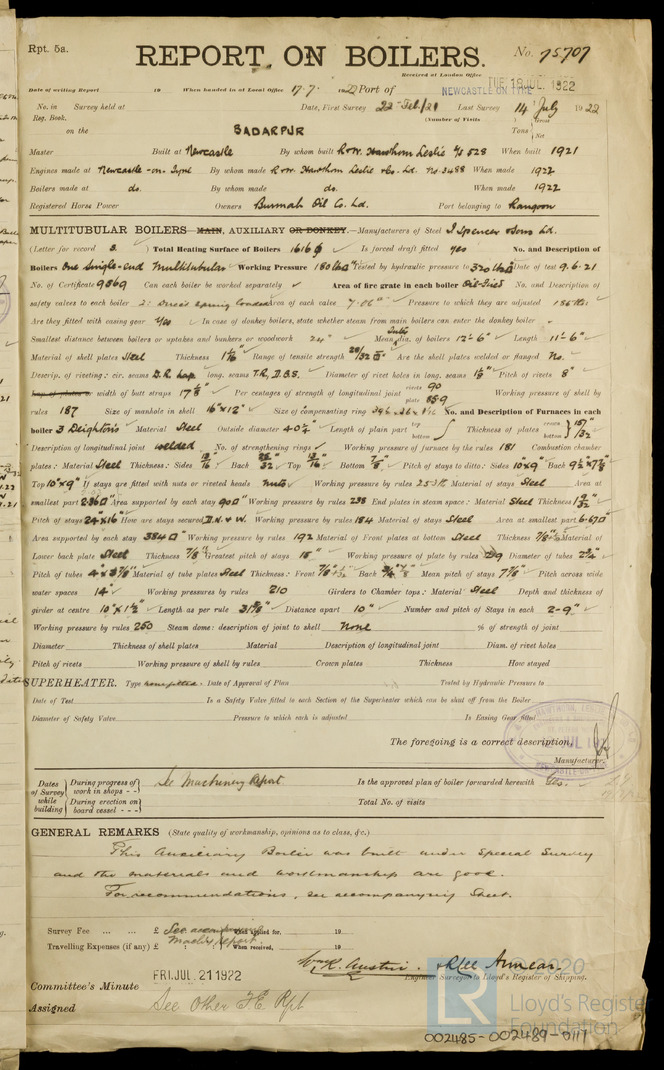 Rpt. 5a.
REPORT ON BOILERS.
No. 75707
Received at London Office
TUE 18 JUL. 1922
Date of writing Report 19 When handed in at Local Office 17.7. 1922 Port of NEWCASTLE ON TYNE
No. in Survey held at Date, First Survey 22 Feb/21 Last Survey 14 July 1922
Reg. Book. (Number of Visits Gross
on the BADARPUR Tons Net
Master Built at Newcastle By whom built R & W. Hawthorn Leslie Y/S 528 When built 1921
Engines made at Newcastle-on-Tyne By whom made R & W. Hawthorn Leslie & Co. Ld. No. 3488 When made 1922
Boilers made at do. By whom made do. When made 1922
Registered Horse Power Owners Burmah Oil Co. Ld. Port belonging to Rangoon
MULTITUBULAR BOILERS MAIN, AUXILIARY OR DONKEY.—Manufacturers of Steel J Spencer & Sons Ld.
(Letter for record S. ) Total Heating Surface of Boilers 1616 Is forced draft fitted Yes No. and Description of
Boilers One Single-end Multitubular Working Pressure 180 lbs Tested by hydraulic pressure to 320 lbs Date of test 9.6.21
No. of Certificate 9869 Can each boiler be worked separately Area of fire grate in each boiler Oil-Fired No. and Description of
safety valves to each boiler 2: Direct Spring Loaded Area of each valve 7.06" Pressure to which they are adjusted 185 lbs
Are they fitted with easing gear Yes In case of donkey boilers, state whether steam from main boilers can enter the donkey boiler -
Smallest distance between boilers or uptakes and bunkers or woodwork Mean dia. of boilers 12'-6" Length 11'-6"
Material of shell plates Steel Thickness 1 1/16" Range of tensile strength 28/32 Are the shell plates welded or flanged No.
Descrip. of riveting: cir. seams D.R. lap long. seams T.R., D.B.S. Diameter of rivet holes in long. seams 1 1/8" Pitch of rivets 8"
Lap of plates or width of butt straps 17 1/8" Per centages of strength of longitudinal joint rivets 90 plate 85.9 Working pressure of shell by
rules 187 Size of manhole in shell 16"x12" Size of compensating ring No. and Description of Furnaces in each
boiler 3 Deightons Material Steel Outside diameter 40 1/2" Length of plain part top bottom Thickness of plates crown bottom 15/32"
Description of longitudinal joint welded No. of strengthening rings Working pressure of furnace by the rules 181 Combustion chamber
plates: Material Steel Thickness: Sides 13/16" Back 25/32" Top 13/16" Bottom 7/8" Pitch of stays to ditto: Sides 10"x9" Back 9 1/2"x7 7/8"
Top 10"x9" If stays are fitted with nuts or riveted heads nuts Working pressure by rules Material of stays Steel Area at
smallest part Area supported by each stay 90 Working pressure by rules 238 End plates in steam space: Material Steel Thickness 1 9/32"
Pitch of stays 24"x16" How are stays secured D.N. & W. Working pressure by rules 184 Material of stays Steel Area at smallest part 6.67
Area supported by each stay 384 Working pressure by rules 192 Material of Front plates at bottom Steel Thickness Material of
Lower back plate Steel Thickness 7/8" Greatest pitch of stays 15" Working pressure of plate by rules Diameter of tubes 2 3/4"
Pitch of tubes 4"x3 7/8" Material of tube plates Steel Thickness: Front Back Mean pitch of stays 7 7/8" Pitch across wide
water spaces 14" Working pressures by rules 210 Girders to Chamber tops: Material Steel Depth and thickness of
girder at centre 10"x1 1/2" Length as per rule 31 5/8" Distance apart 10" Number and pitch of Stays in each 2-9"
Working pressure by rules 250 Steam dome: description of joint to shell None % of strength of joint
Diameter Thickness of shell plates Material Description of longitudinal joint Diam. of rivet holes
Pitch of rivets Working pressure of shell by rules Crown plates Thickness How stayed
SUPERHEATER. Type none fitted. Date of Approval of Plan Tested by Hydraulic Pressure to
Date of Test Is a Safety Valve fitted to each Section of the Superheater which can be shut off from the Boiler
Diameter of Safety Valve Pressure to which each is adjusted Is Easing Gear fitted
The foregoing is a correct description,
Manufacturer.
Dates of Survey while building During progress of work in shops - - See Machinery Report Is the approved plan of boiler forwarded herewith Yes.
During erection on board vessel - - - Total No. of visits
GENERAL REMARKS (State quality of workmanship, opinions as to class, &c.)
This Auxiliary Boiler was built under Special Survey
and the materials and workmanship are good.
For recommendations, see accompanying Sheet.
Survey Fee ... ... £ See accompanying When applied for, 19
Travelling Expenses (if any) £ Machy Report. When received, 19
Wm R. Austin
Engineer Surveyor to Lloyd's Register of Shipping.
© 2020
Committee's Minute FRI. JUL. 21 1922
Assigned See Other F.E. Rpt
LR
Lloyd's Register
Foundation
002485-002489-0117